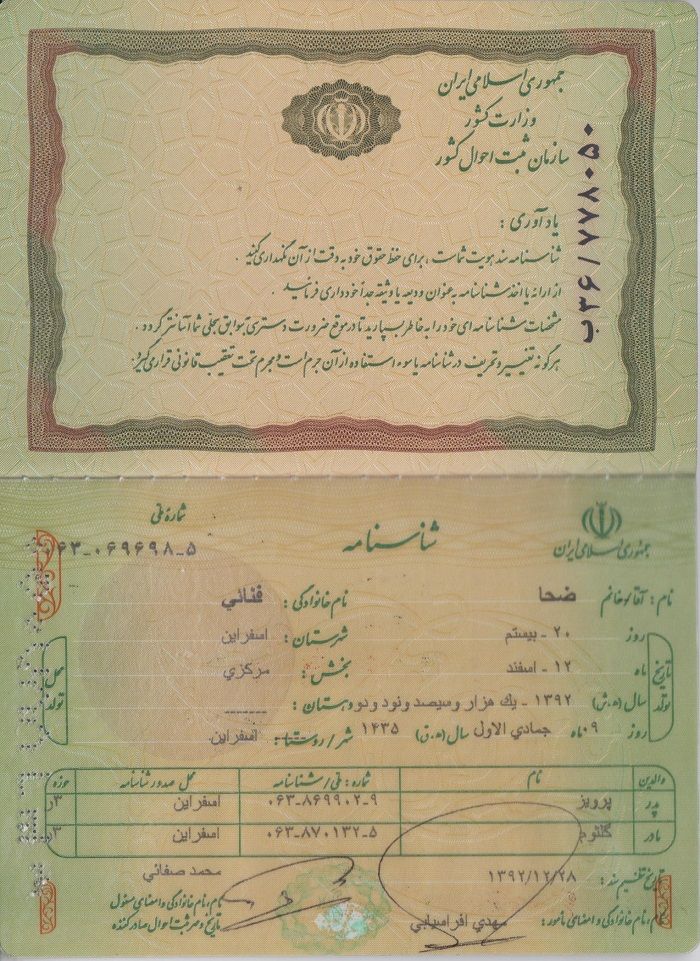 جمهوری اسلامی ایران
وزارت کشور
سازمان ثبت احوال کشور
ب۳۶/۷۷۸۰۵۰
یادآوری :
شناسنامه سند هویت شماست ، برای حفظ حقوق خود به دقت از آن نگهداری کنید .
از ارائه یا اخذ شناسنامه به عنوان ودیعه یا وثیقه جداً خودداری فرمائید .
مشخصات شناسنامه ای خود را به خاطر بسپارید تا در موقع ضرورت دسترسی به سوابق سجلی شما آسانتر گردد .
هرگونه تغییر و تحریف در شناسنامه یا سوء استفاده از آن جرم است و مجرم تحت تعقیب قانونی قرار می گیرد .
جمهوری اسلامی ایران
شناسنامه
شماره ملی
۰۶۳-۰۶۹۶۹۸-۵
نام : آقا/خانم ضحا نام خانوادگی : فنائي
تاریخ تولد
روز ۲۰ - بیستم شهرستان : اسفراین
ماه ۱۲ - اسفند بخش : مرکزي
سال (ه.ش) ۱۳۹۲ - یك هزار وسیصد ونود ودو دهستان : -------
روز ۰۹ ماه جمادي الاول سال (ه.ق) ۱۴۳۵ شهر/روستا : اسفراین
محل تولد
والدین نام شماره : ملی/شناسنامه محل صدور شناسنامه حوزه
پدر پرویز ۰۶۳-۸۶۹۹۰۲-۹ اسفراین ۳ر
مادر گلثوم ۰۶۳-۸۷۰۱۳۲-۵ اسفراین ۳ر
تاریخ تنظیم سند : ۱۳۹۲/۱۲/۲۸ محمد صفائي
نام، نام خانوادگی و امضای مأمور : مهدي افراسیابي
نام، نام خانوادگی و امضای مسئول
تاریخ و مهر ثبت احوال صادر کننده